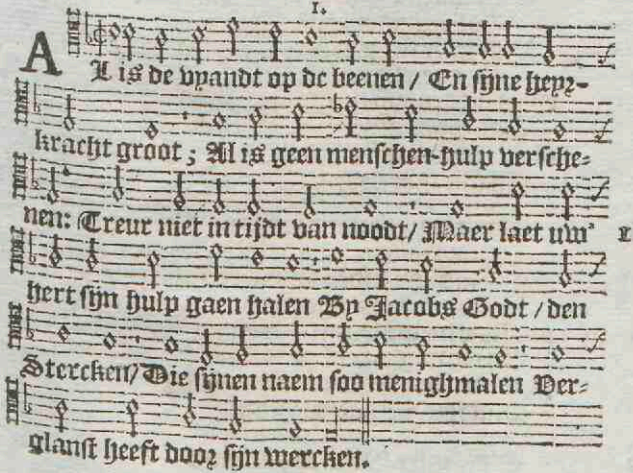 I.
AL is de vyandt op de beenen / En sijne heyr-
kracht groot ; Al is geen menschen-hulp versche-
nen: Treur niet in tijdt van noodt / Maer laet uw'
hert sijn hulp gaen halen By Jacobs Godt / den
Stercken / Die sijnen naem soo menighmalen Ver-
glanst heeft door sijn wercken.